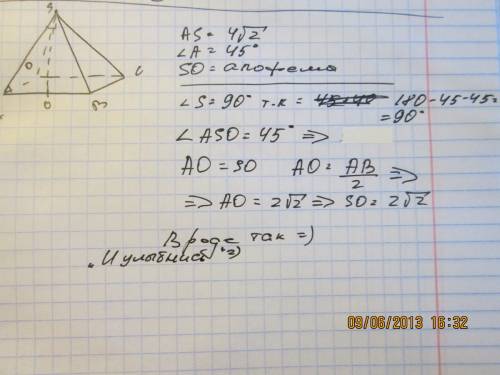 S
AS = 4√2
∠A = 45°
SO = апофема
∠S = 90° т.к = 180-45-45=
= 90°
∠ASO = 45° =>
AO = SO AO = AB/2 =>
=> AO = 2√2 => SO = 2√2
O
O
Вроде так =)
„И улыбнись“ =)
09/06/2013 16:32